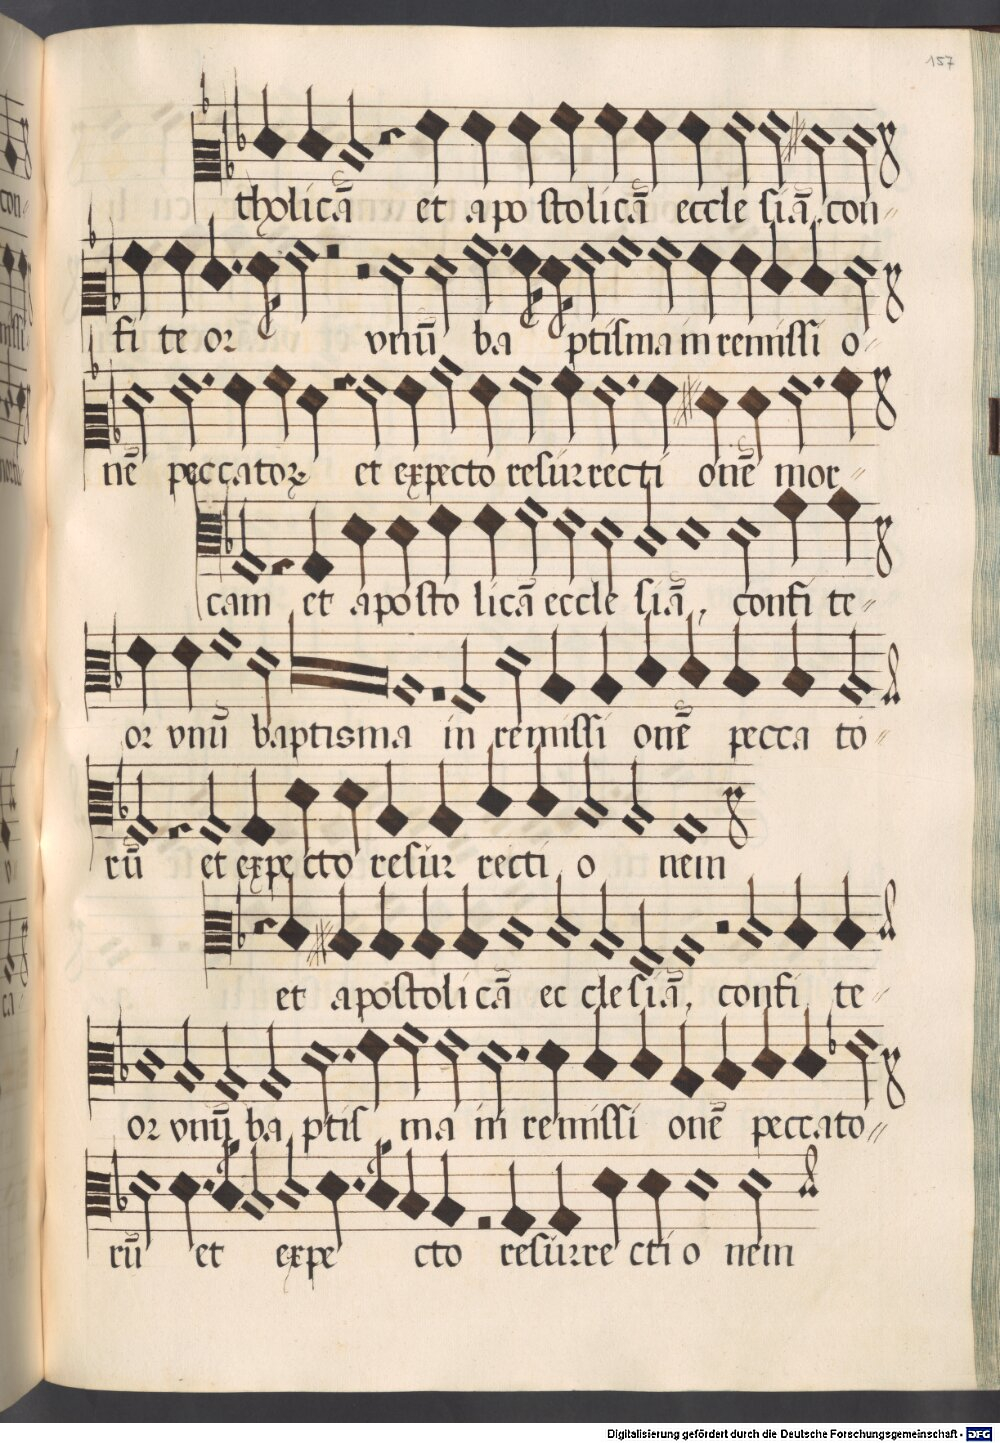 157
tholicā et apostolicā ecclesiā. con〃
fi te or vnuū ba ptisma in remissi o〃
nē peccatoꝝ et expecto resurrecti onē mor〃
cam et aposto licā eccle siā. confi te〃
or vnū baptisma in remissi onē pecca to〃
rū et expecto resur recti o nem
et apostoli cā ec clesiā. confi te〃
or vnū ba ptis ma in remissi onē peccato〃
rū et expe cto resurre cti o nem
con〃
missi
Digitalisierung gefördert durch die Deutsche Forschungsgemeinschaft - DFG